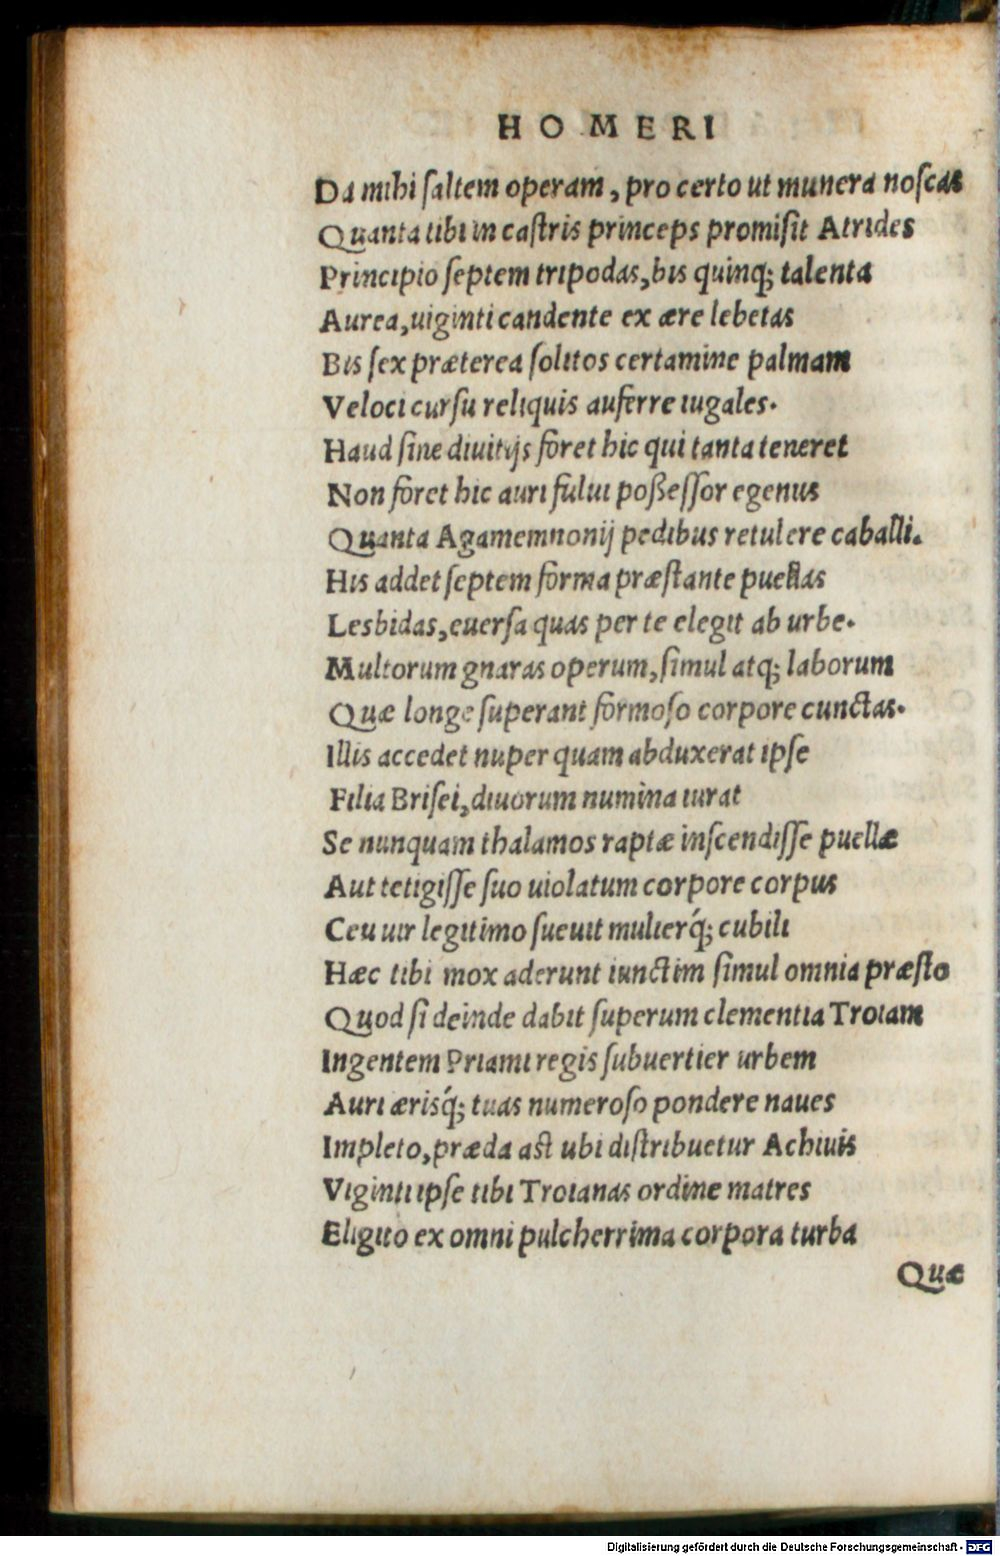 HOMERI
Da mihi ſaltem operam, pro certo ut munera noſcas
Quanta tibi in caſtris princeps promiſit Atrides
Principio ſeptem tripodas, bis quinq; talenta
Aurea, uiginti candente ex ære lebetas
Bis ſex præterea ſolitos certamine palmam
Veloci curſu reliquis auferre iugales.
Haud ſine diuitijs foret hic qui tanta teneret
Non foret hic auri fului poßeſſor egenus
Quanta Agamemnonij pedibus retulere caballi.
His addet ſeptem forma præſtante puellas
Lesbidas, euerſa quas per te elegit ab urbe.
Multorum gnaras operum, ſimul atq; laborum
Quæ longe ſuperant formoſo corpore cunctas.
Illis accedet nuper quam abduxerat ipſe
Filia Briſei, diuorum numina iurat
Se nunquam thalamos raptæ inſcendiſſe puellæ
Aut tetigiſſe ſuo uiolatum corpore corpus
Ceu uir legitimo ſueuit mulierq́; cubili
Hæc tibi mox aderunt iunctim ſimul omnia præſto
Quod ſi deinde dabit ſuperum clementia Troiam
Ingentem Priami regis ſubuertier urbem
Auri ærisq́; tuas numeroſo pondere naues
Impleto, præda aſt ubi diſtribuetur Achiuis
Viginti ipſe tibi Troianas ordine matres
Eligito ex omni pulcherrima corpora turba
Quæ
Digitalisierung gefördert durch die Deutsche Forschungsgemeinschaft - DFG